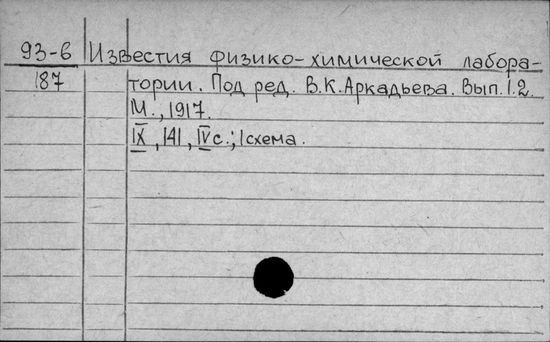 93-6 Известия физико-химической лабора-
187 тории. Под ред. В.К.Аркадьева. Вып.1.2.
М., 1917.
IX, 141, IV с.; 1 схема.